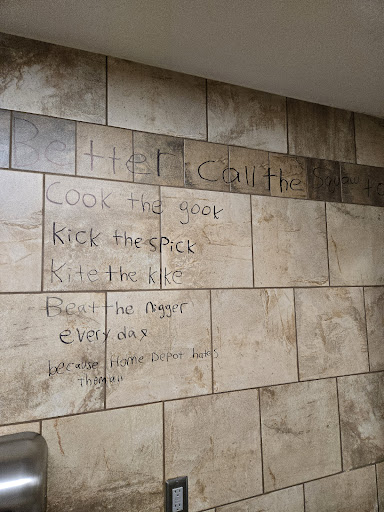 Better Call the Squad
Cook the gook
Kick the spick
Kite the kike
Beat the nigger
every day
because Home Depot hates
them all